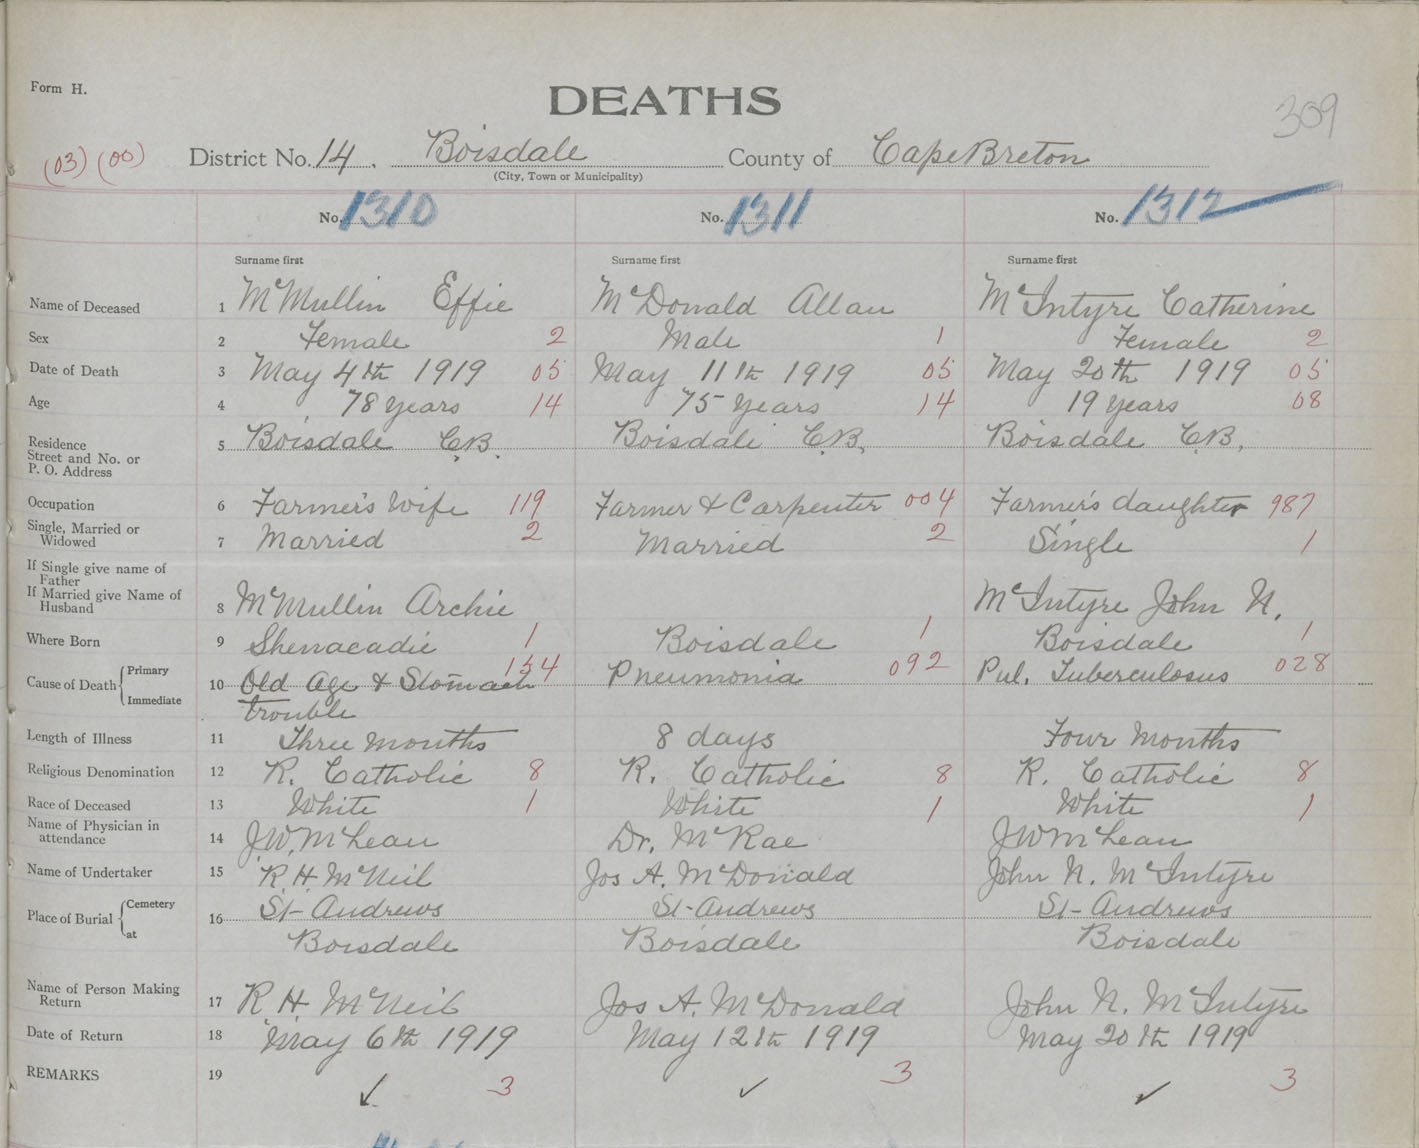 Form H.
DEATHS
309
(03) (00) District No. 14. Boisdale County of Cape Breton
(City, Town or Municipality)
No. 1310 No. 1311 No. 1312
Surname first Surname first Surname first
Name of Deceased 1 McMullin Effie McDonald Allan McIntyre Catherine
Sex 2 Female 2 Male 1 Female 2
Date of Death 3 May 4th 1919 05 May 11th 1919 05 May 20th 1919 05
Age 4 78 years 14 75 years 14 19 years 08
Residence
Street and No. or
P. O. Address
5 Boisdale C.B. Boisdale C.B, Boisdale C.B,
Occupation 6 Farmer's Wife 119 Farmer & Carpenter 004 Farmer's daughter 987
Single, Married or
Widowed
7 Married 2 Married 2 Single 1
If Single give name of
Father
If Married give Name of
Husband
8 McMullin Archie McIntyre John N.
Where Born 9 Shenacadie 1 Boisdale 1 Boisdale 1
Cause of Death Primary
Immediate
10 Old Age & Stomach 154 Pneumonia 092 Pul. Tuberculosus 028
trouble
Length of Illness 11 Three months 8 days Four Months
Religious Denomination 12 R. Catholic 8 R. Catholic 8 R. Catholic 8
Race of Deceased 13 White 1 White 1 White 1
Name of Physician in
attendance
14 J.W. McLean Dr. McRae JW McLean
Name of Undertaker 15 R. H. McNeil Jos A. McDonald John N. McIntyre
Place of Burial Cemetery
at
16 St-Andrews St-Andrews St-Andrews
Boisdale Boisdale Boisdale
Name of Person Making
Return
17 R. H. McNeil Jos A. McDonald John N. McIntyre
Date of Return 18 May 6th 1919 May 12th 1919 May 20th 1919
REMARKS 19 3 3 3